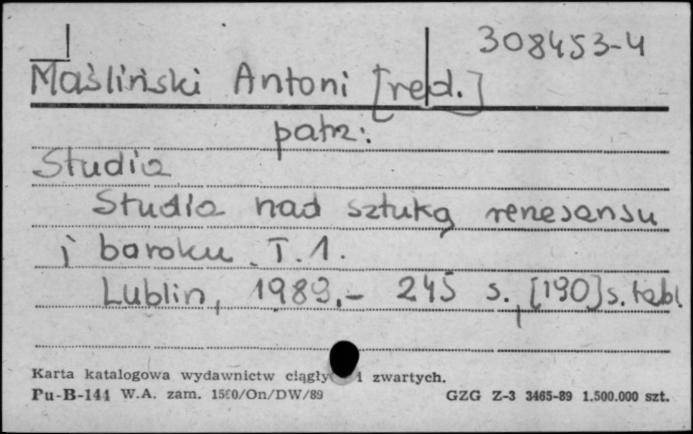 308453-4
Maśliński Antoni [red.]
patrz:
Studia
Studia nad sztuką renesansu
i baroku. T. 1.
Lublin, 1989.- 245 s., [190] s. tabl.
Karta katalogowa wydawnictw ciągły i zwartych.
Pu-B-144 W.A. zam. 1560/On/DW/89 GZG Z-3 3465-89 1.500.000 szt.